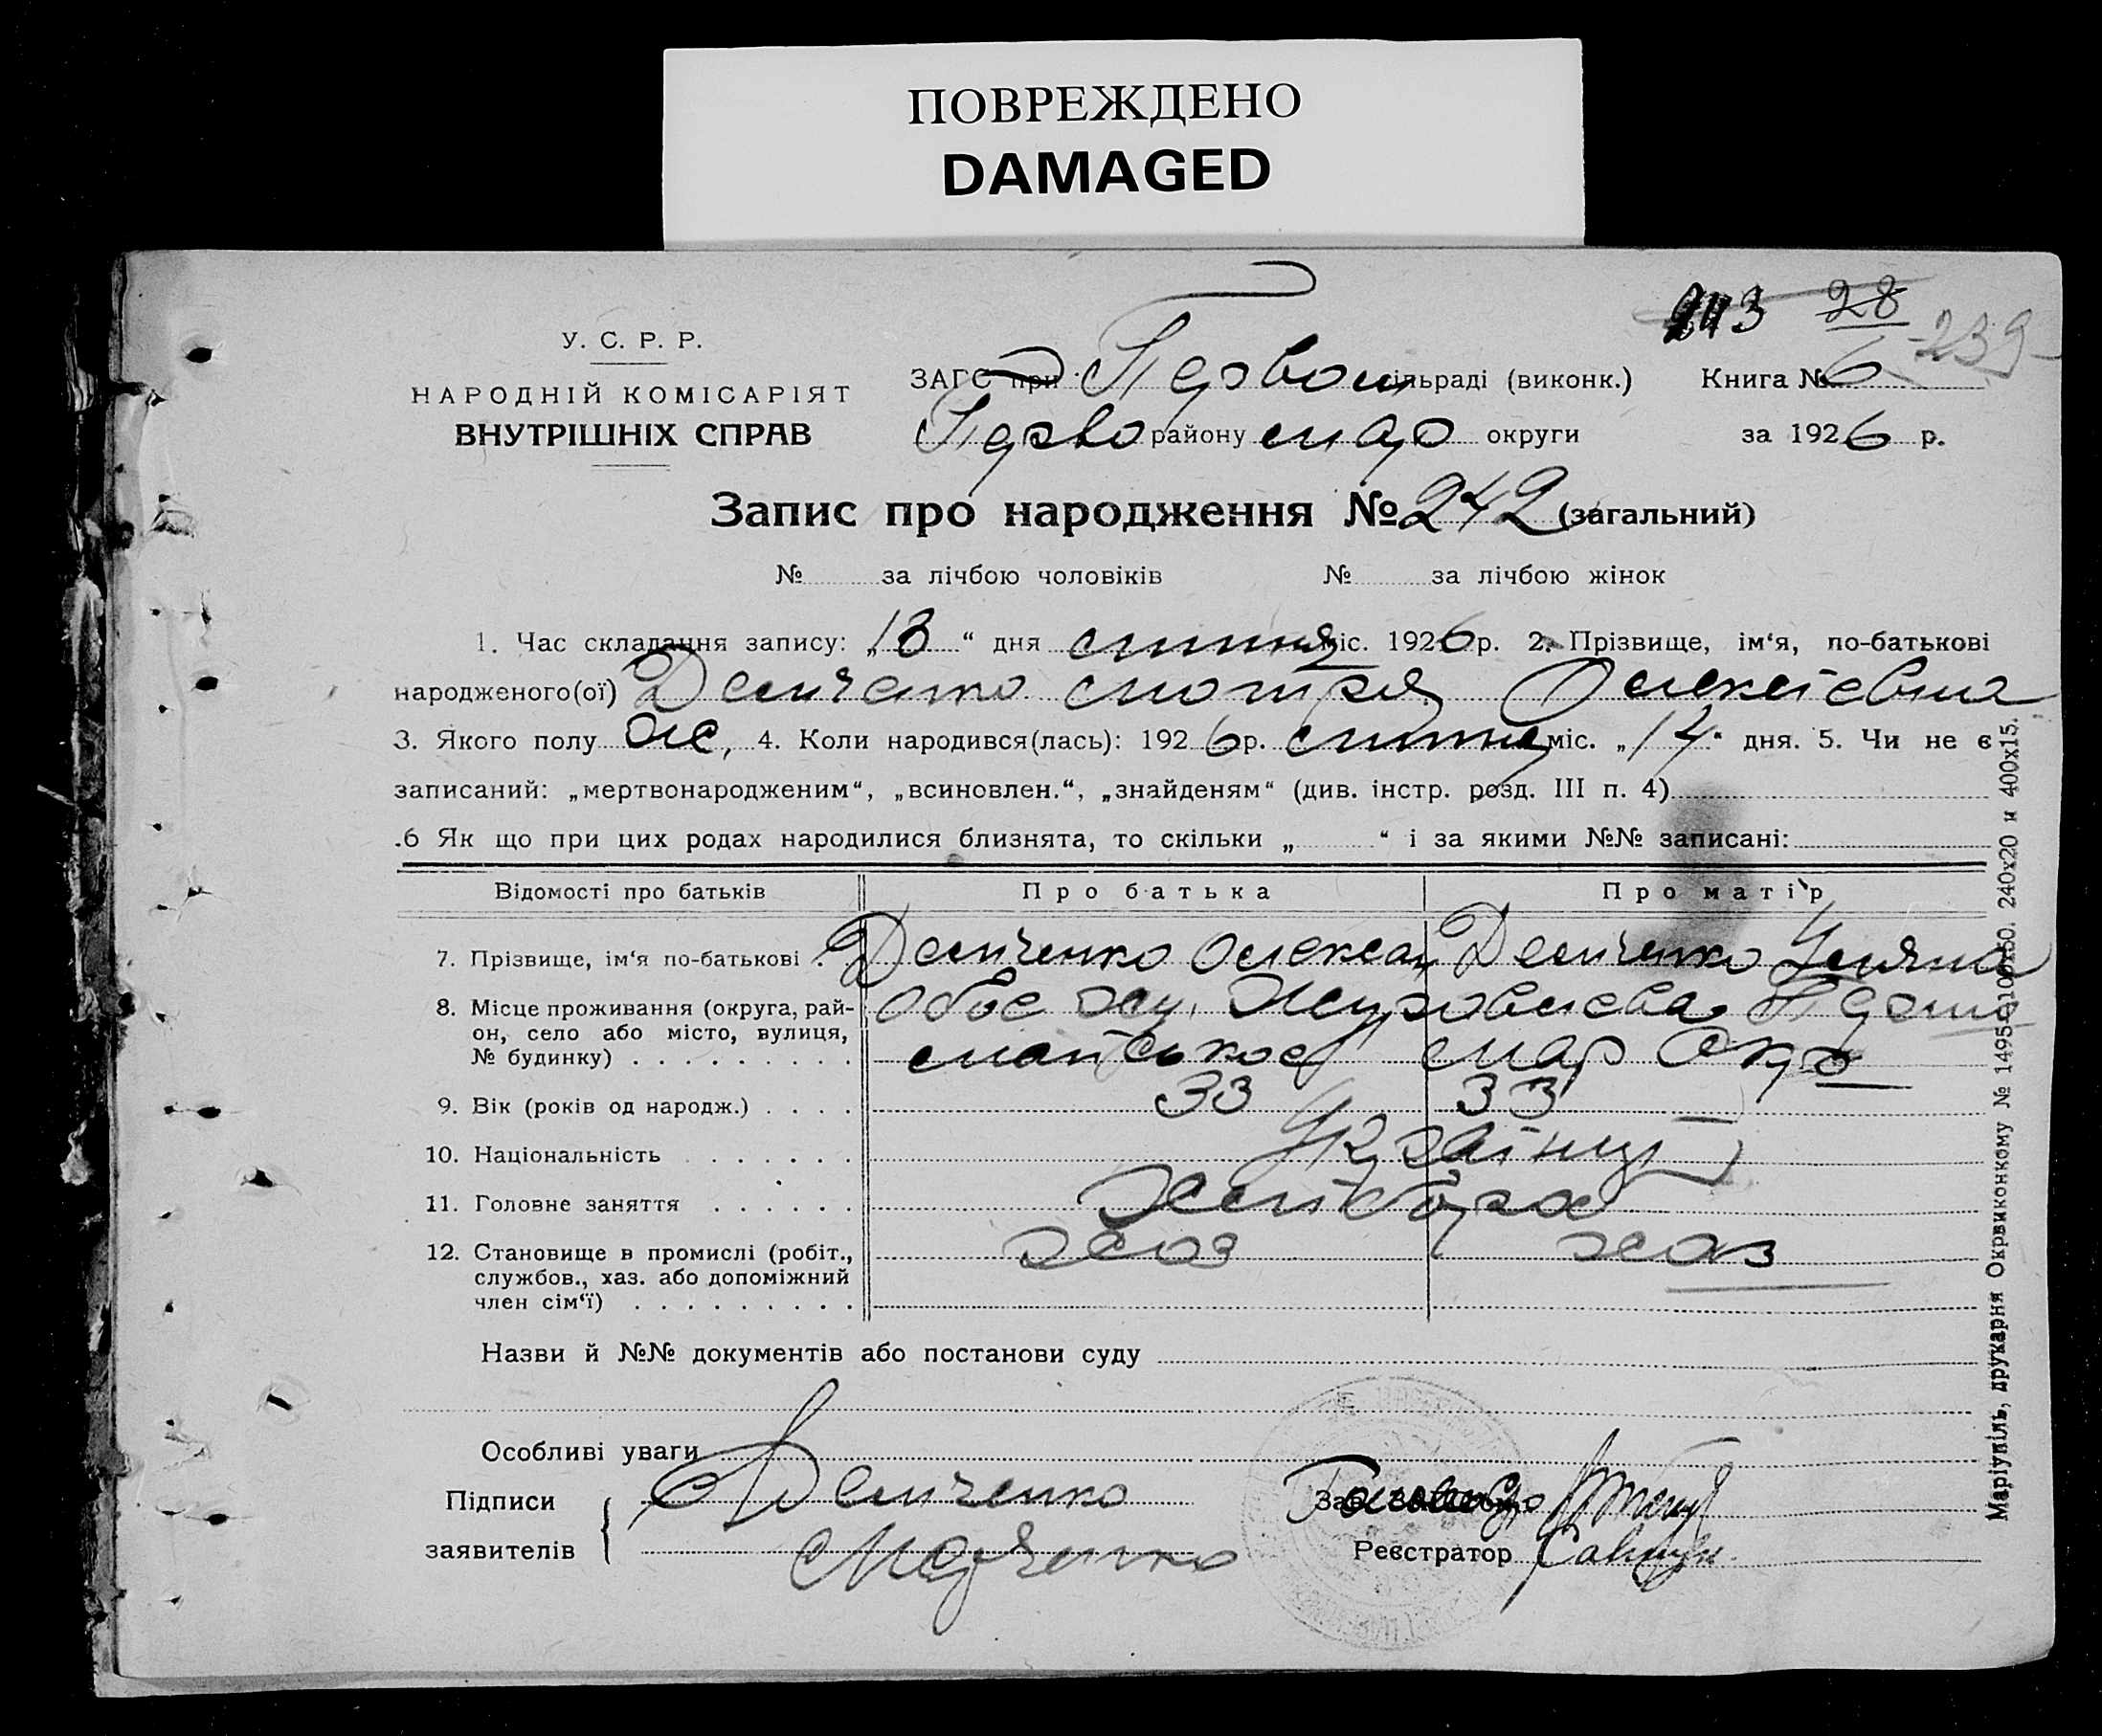 ПОВРЕЖДЕНО
DAMAGED
243 28 -239-
У. С. Р. Р.
НАРОДНІЙ КОМІСАРІЯТ
ВНУТРІШНІХ СПРАВ
ЗАГС при Первом сільраді (виконк.) Книга № 6
Перво району мар округи за 1926 р.
Запис про народження № 242 (загальний)
№ за лічбою чоловіків № за лічбою жінок
1. Час складання запису: „18“ дня липня міс. 1926 р. 2. Прізвище, ім‘я, по-батькові
народженого(ої) Демченко мотря Олексієвна
3. Якого полу жс, 4. Коли народився(лась): 1926 р. липня міс. „14“ дня. 5. Чи не є
записаний: „мертвонародженим“, „всиновлен.“, „знайденям“ (див. інстр. розд. III п. 4)
.6 Як що при цих родах народилися близнята, то скільки „ “ і за якими №№ записані:
Відомості про батьків Про батька Про матір
7. Прізвище, ім‘я по-батькові . . Демченко Олексан Демченко Уляна
8. Місце проживання (округа, рай-
он, село або місто, вулиця,
№ будинку) . . . . . . . . . майської мар Окр
9. Вік (років од народж.) . . . . 33 33
10. Національність . . . . . . Українці
11. Головне заняття . . . . . . Хлібороб
12. Становище в промислі (робіт., хаз хаз
службов., хаз. або допоміжний
член сім‘ї) . . . . . . . . .
Назви й №№ документів або постанови суду
Особливі уваги
Підписи Демченко
заявителів Реєстратор
Маріупіль, друкарня Окрвиконкому № 1495-100х50. 240х20 и 400х15.